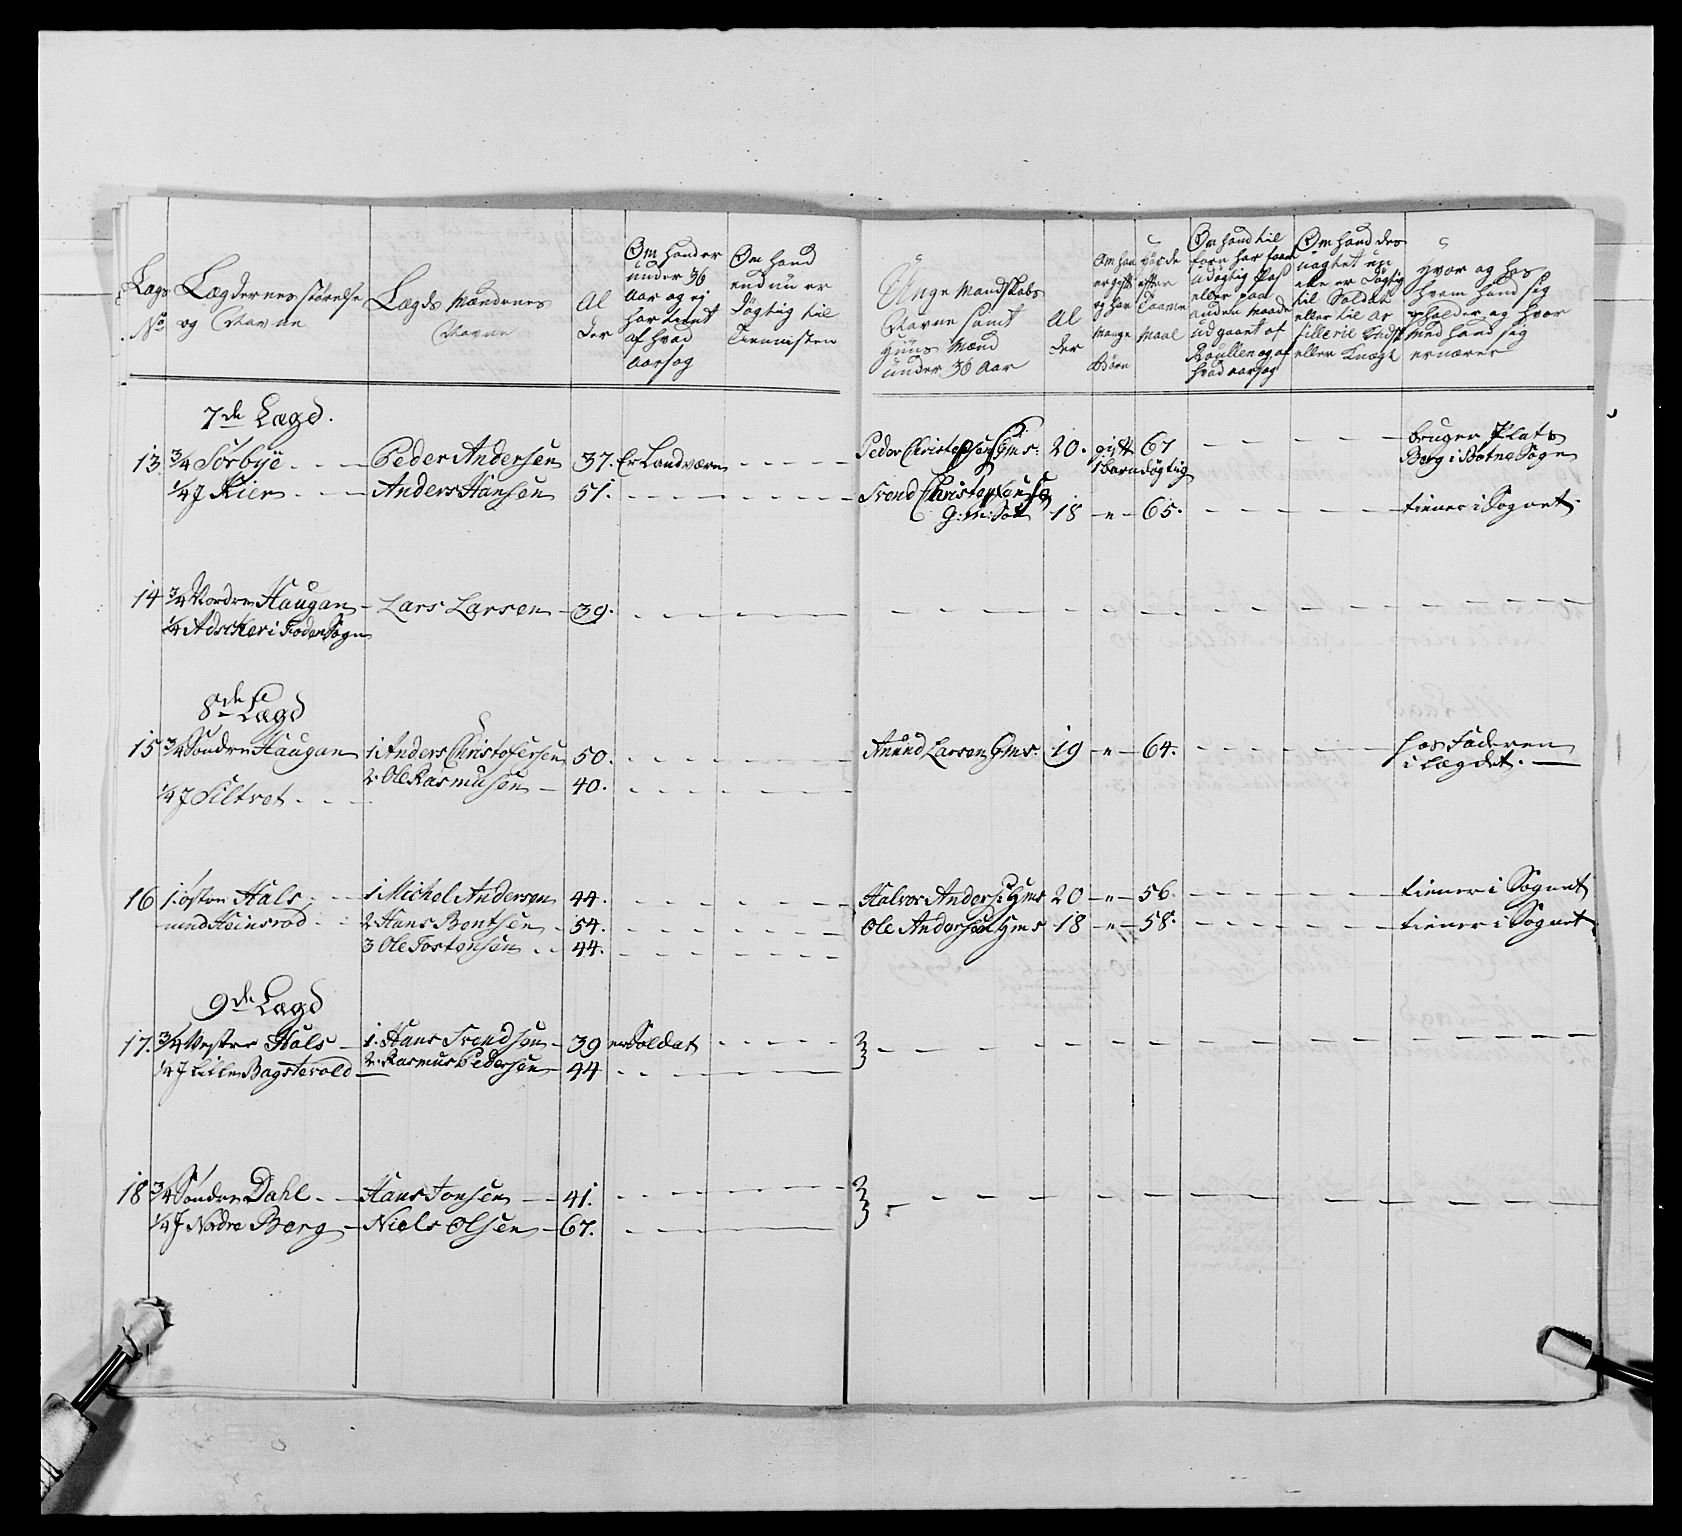 Lægs No
Lægdernes størrelse og Navne
Lægds Mændenes Navne
Al der
Om hand er under 36 Aar og ej har tient af hvad aarsag
Om hand endnu er døgtig til Tiennisten
Unge Mandskabs Navne samt Huus Mænd under 36 Aar
Al der
Om han er gift og har mange Børn
Høyde efter Tomme Maal
Om hand til forn har faaet udøgtig Pas eller paa anden Maade udgaaet af Roullen og af hvad aarsag
Om hand des uagtet un eller er døgtig til Soldat eller til Artillerie Kudsk eller Knægt
Hvor og hos hvem hand sig opholder og hvor med hand sig ernærer
7de Lægd.
13 3/4 Sørbye - - - Peder Andersen 37. Er Landværn - - - - Peder Christophersen Hms: 20. gift 67 - - - - - bruger Plads
1 Barn døgtig Berg i Botne Sogn
1/4 J Kier - - - Anders Hansen 51. - - - - - Svend Christophersen
G: M: Søn 18 - " - 65. - - - - - tiener i Sognet
14 3/4 Nordre Haugan - Lars Larsen - 39. - - - - -
1/4 Adskier i Foden Sogn
8de Lægd
15 3/4 Søndre Haugan 1 Anders Christofersen 50. - - - - - Anund Larsen Hms 19 - " - 64. - - - - - hos Faderen
2. Ole Rasmusen - 40. - - - - - i Lægdet. -
1/4 J Siltvet - - -
16 1. østen Hals - - 1 Michel Andersen 44. - - - - - Halvor Anders: Hms 20 - " - 56. - - - - - tiener i Sognet
med Heinsrød - - 2 Hans Bentsen - 54. - - - - - Ole Andersen Hms 18 - " - 58. - - - - - tiener i Sognet
3 Ole Tostensen - - 44. - - - - -
9de Lægd
17. 3/4 Vestre Hals - 1. Hans Svendsen - 39 er Soldat - - - -
1/4 J Lille Bagstevold - 2. Rasmus Pedersen - 44 - - - - -
18 3/4 Søndre Dahl - - Hans Jonsen - - 41. - - - - -
1/4 J Nordre Berg - Niels Olsen - 67. - - - - -